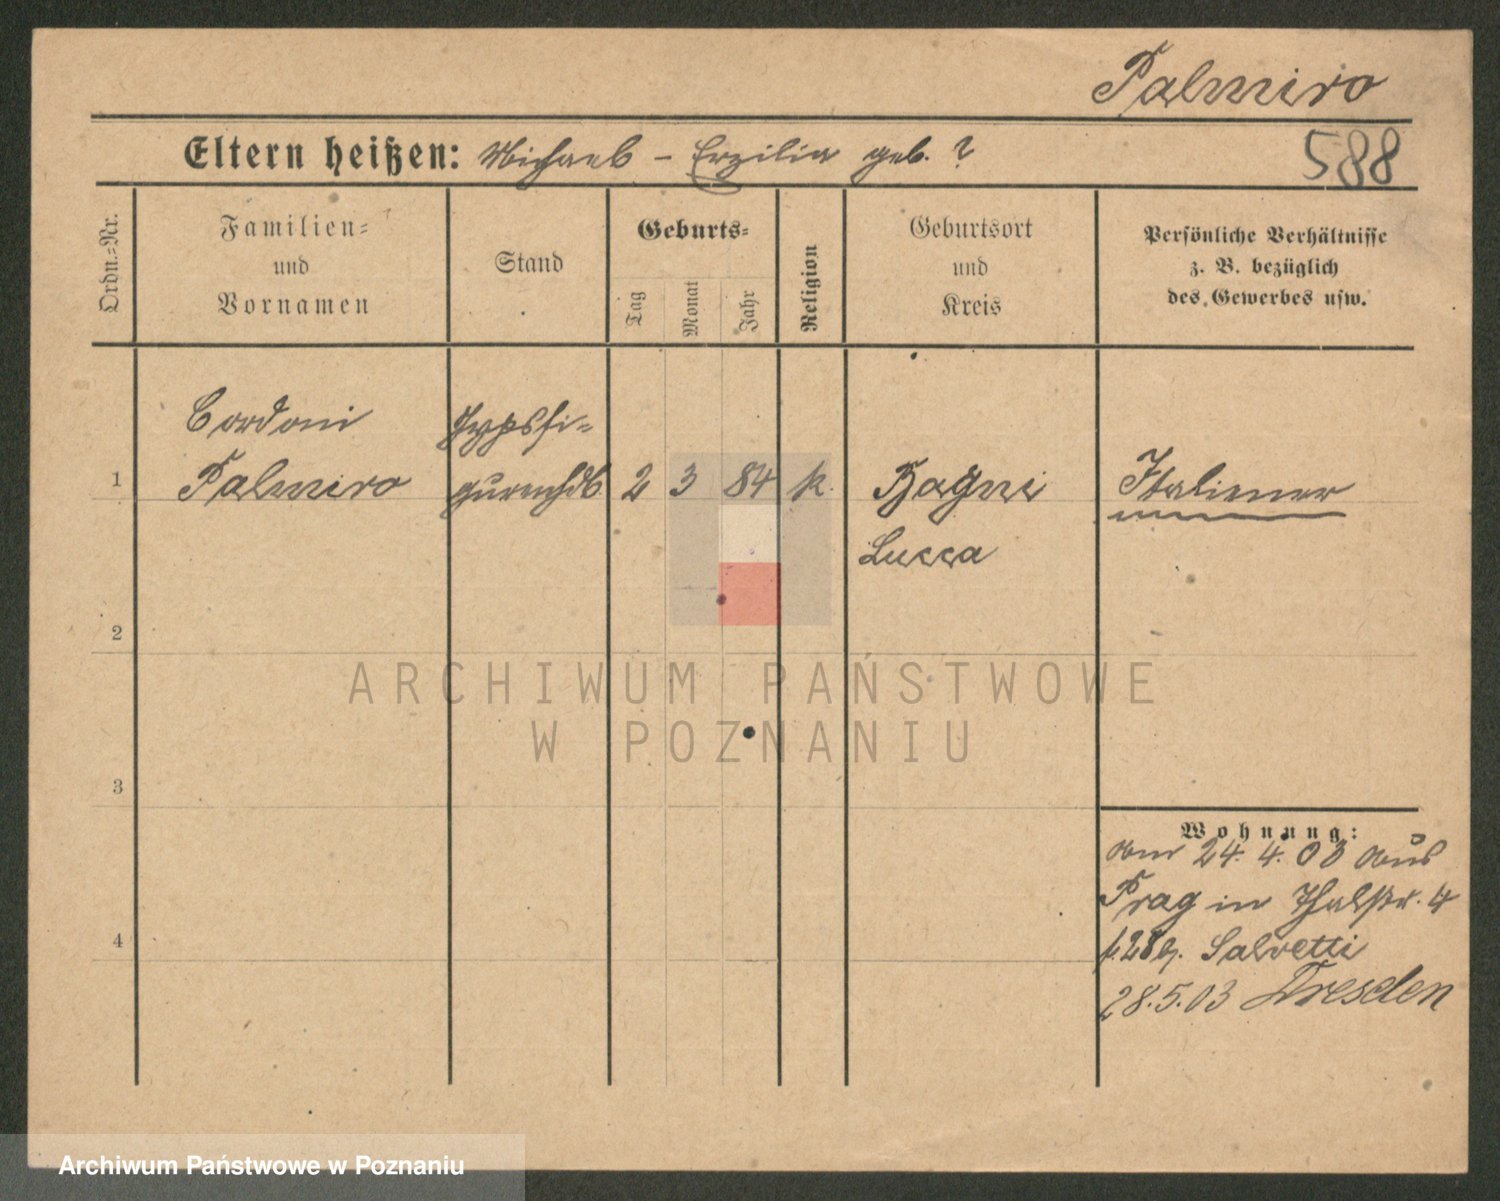 Palmiro
Eltern heißen: Michael - Erzilia geb. ?
588
Ordn.-Nr.
Familien-
und
Vornamen
Stand
Geburts-
Tag
Monat
Jahr
Religion
Geburtsort
und
Kreis
Persönliche Verhältnisse
z. B. bezüglich
des Gewerbes usw.
Cordoni
Gypsfi-
1 Palmiro gurenhdl. 2 3 84 k. Bagni Italiener
Lucca
2
3
4
Wohnung:
am 24. 4. 03 aus
Prag in Thalstr. 4
b. Salvetti
28.5.03 Dresden
ARCHIWUM PAŃSTWOWE
W POZNANIU
Archiwum Państwowe w Poznaniu